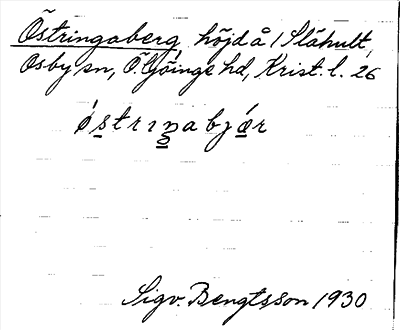 Östringaberg, höjd å / Slähult,
Osby sn, Ö. Göinge hd, Krist. l. 26
óstrıŋabjǽr
Sigv. Bengtsson 1930